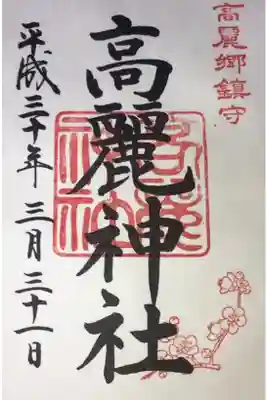 高麗郷鎮守
高麗神社
平成三十年 三月 三十一日